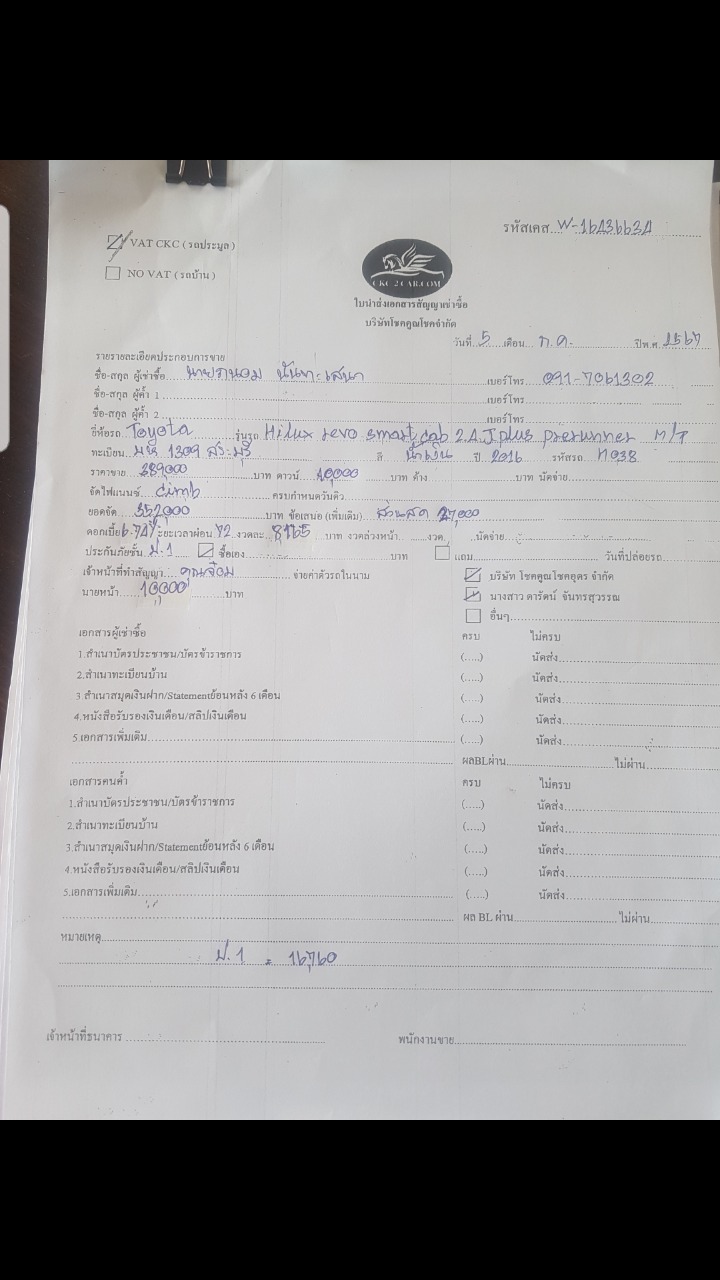 รหัสเคส...W-1643663A
VAT CKC ( รถประมูล )
NO VAT ( รถบ้าน )
CKC 2 CAR.COM
ใบนำส่งเอกสารสัญญาเช่าซื้อ
บริษัทโชคคูณโชคจำกัด
วันที่ 5 เดือน ก.ค. ปีพ.ศ. 2567
รายรายละเอียดประกอบการขาย
ชื่อ-สกุล ผู้เช่าซื้อ เบอร์โทร 091-7061302
ชื่อ-สกุล ผู้ค้ำ 1 เบอร์โทร
ชื่อ-สกุล ผู้ค้ำ 2 เบอร์โทร
ยี่ห้อรถ Toyota รุ่นรถ Hilux revo smart cab 2.4 J plus prerunner M/T
ทะเบียน 1309 สระบุรี สี น้ำเงิน ปี 2016 รหัสรถ N038
ราคาขาย 389,000 บาท ดาวน์ บาท ค้าง บาท นัดจ่าย
จัดไฟแนนซ์ cimb ครบกำหนดวันคิว
ยอดจัด 352,000 บาท ข้อเสนอ (เพิ่มเติม) ส่วนลด 27,000
ดอกเบี้ย 6.74% ระยะเวลาผ่อน 72 งวดละ บาท งวดล่วงหน้า งวด นัดจ่าย
ประกันภัยชั้น ป.1 ซื้อเอง บาท แถม วันที่ปล่อยรถ
เจ้าหน้าที่ทำสัญญา คุณจ๋อม จ่ายค่าตัวรถในนาม บริษัท โชคคูณโชคอุดร จำกัด
นายหน้า 10000 บาท นางสาว ดารัตน์ จันทรสุวรรณ
อื่นๆ
เอกสารผู้เช่าซื้อ ครบ ไม่ครบ
1.สำเนาบัตรประชาชน/บัตรข้าราชการ (.....) นัดส่ง
2.สำเนาทะเบียนบ้าน (.....) นัดส่ง
3.สำเนาสมุดเงินฝาก/Statementย้อนหลัง 6 เดือน (.....) นัดส่ง
4.หนังสือรับรองเงินเดือน/สลิปเงินเดือน (.....) นัดส่ง
5.เอกสารเพิ่มเติม (.....) นัดส่ง
ผลBLผ่าน ไม่ผ่าน
เอกสารคนค้ำ ครบ ไม่ครบ
1.สำเนาบัตรประชาชน/บัตรข้าราชการ (.....) นัดส่ง
2.สำเนาทะเบียนบ้าน (.....) นัดส่ง
3.สำเนาสมุดเงินฝาก/Statementย้อนหลัง 6 เดือน (.....) นัดส่ง
4.หนังสือรับรองเงินเดือน/สลิปเงินเดือน (.....) นัดส่ง
5.เอกสารเพิ่มเติม (.....) นัดส่ง
ผล BL ผ่าน ไม่ผ่าน
หมายเหตุ
ป.1 = 16,760
เจ้าหน้าที่ธนาคาร พนักงานขาย